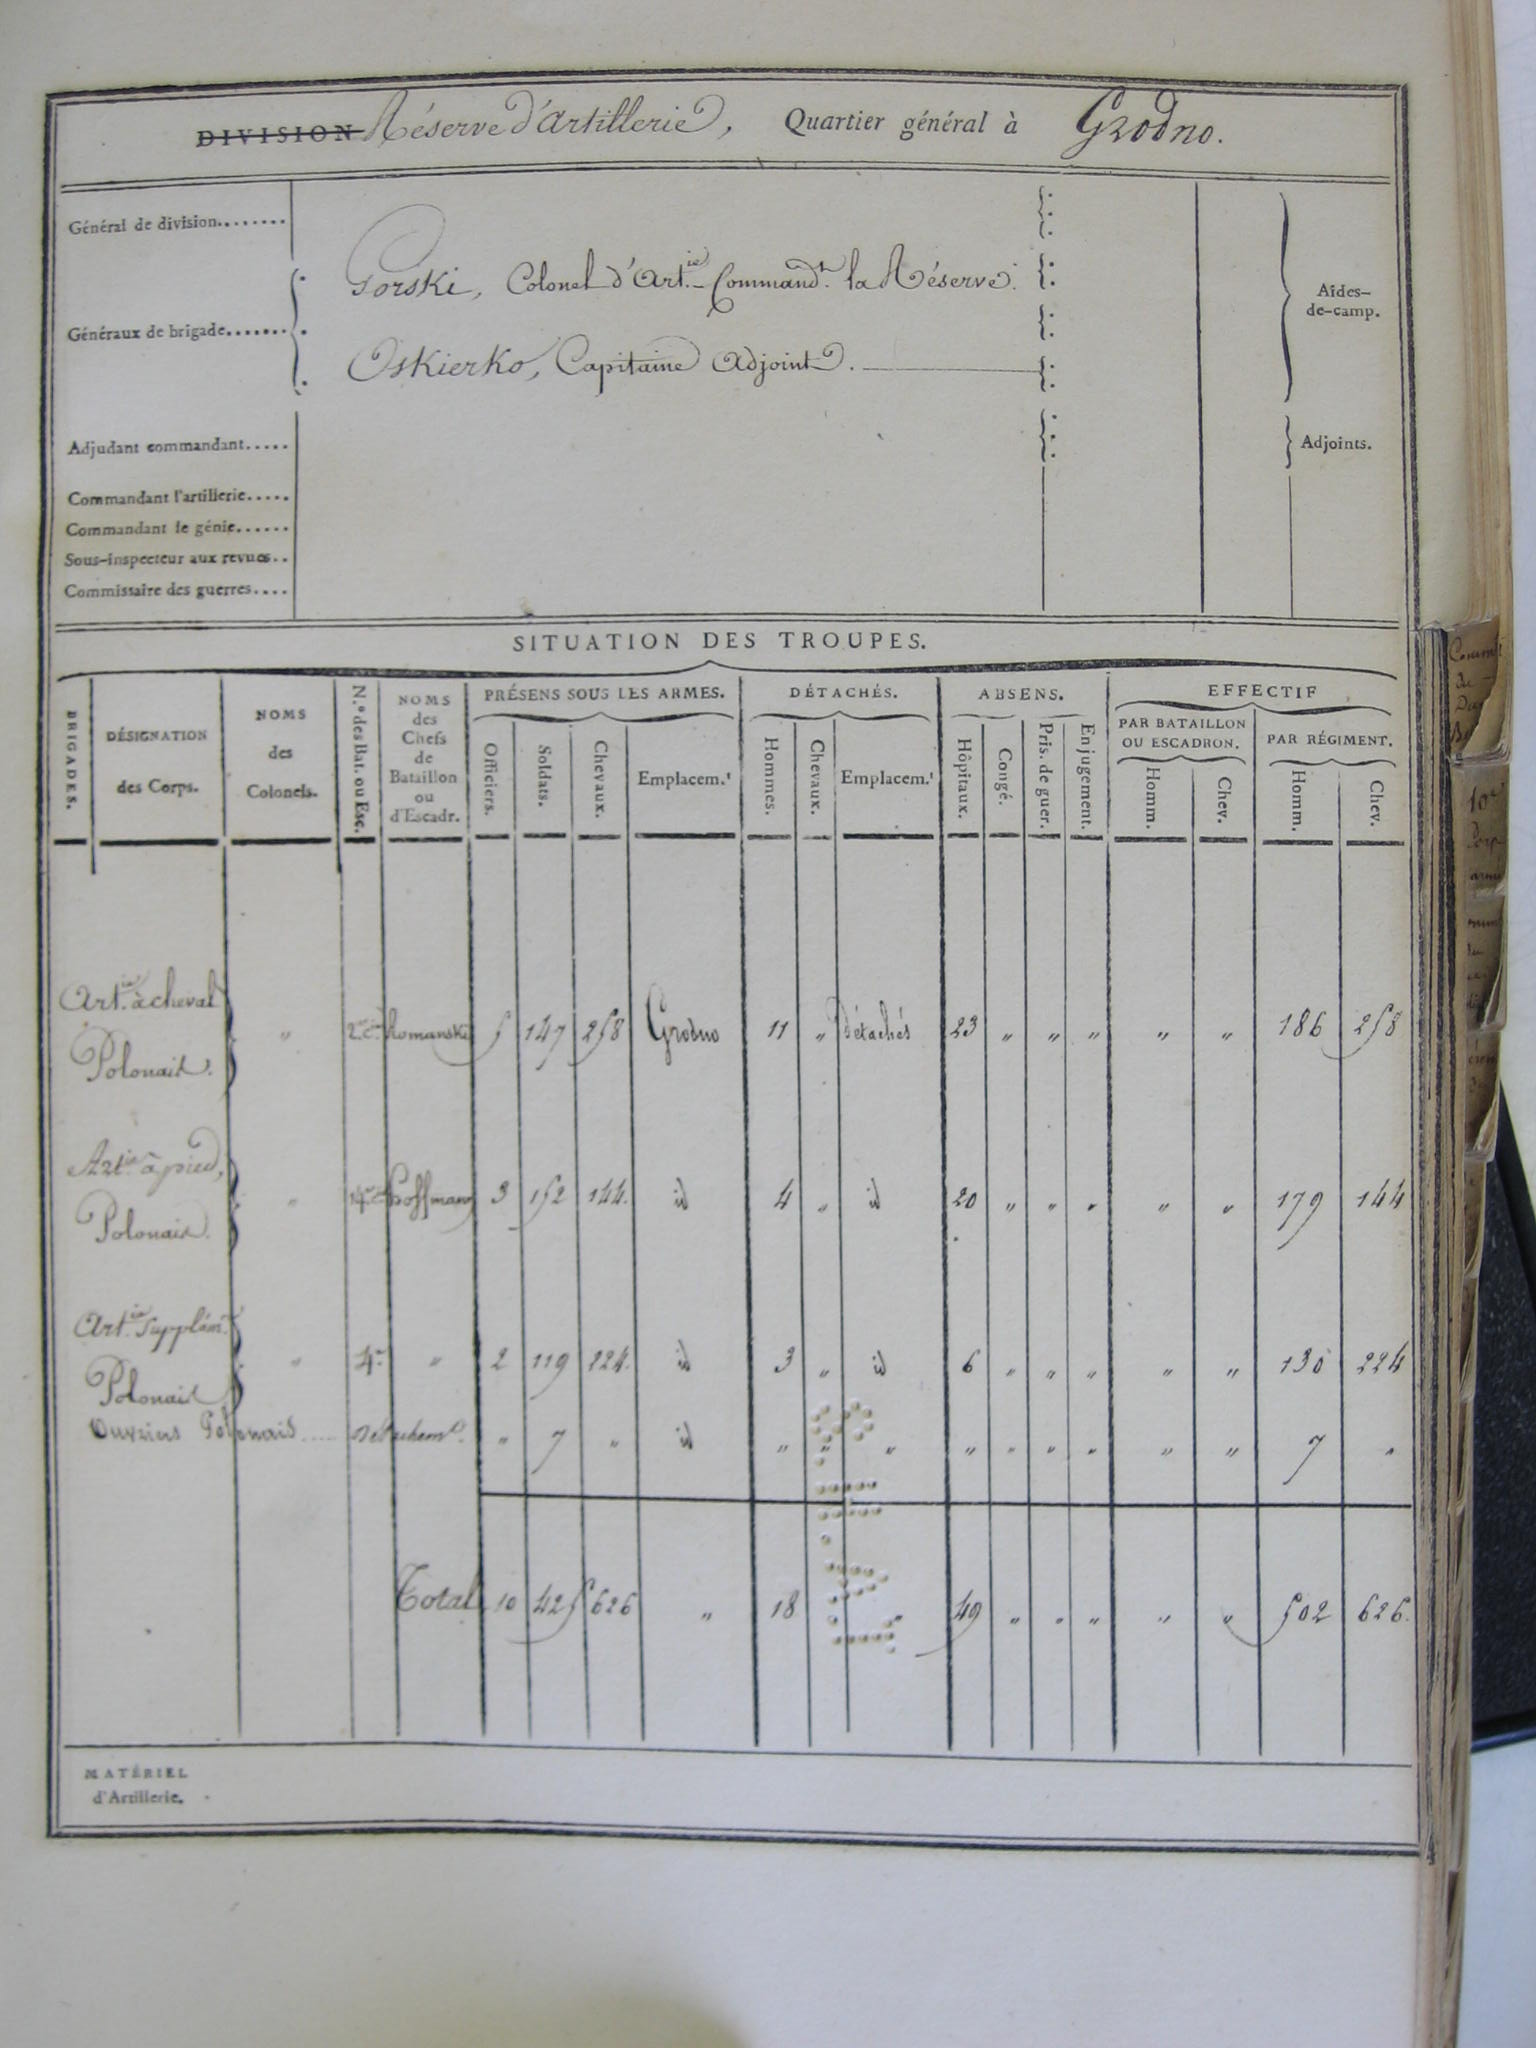 DIVISION Réserve d'Artillerie, Quartier général à Grodno.
Général de division........
Gorski, Colonel d'Art.ie Command.t la Réserve.
Généraux de brigade.......
Aides-
de-camp.
Oskierko, Capitaine Adjoint.
Adjudant commandant.....
Adjoints.
Commandant l'artillerie.....
Commandant le génie......
Sous-inspecteur aux revues..
Commissaire des guerres....
SITUATION DES TROUPES.
BRIGADES. DÉSIGNATION des Corps. NOMS des Colonels. N.º des Bat. ou Esc. NOMS des Chefs de Bataillon ou d'Escadr. PRÉSENS SOUS LES ARMES. DÉTACHÉS. ABSENS. EFFECTIF
Officiers. Soldats. Chevaux. Emplacem.t Hommes. Chevaux. Emplacem.t Hôpitaux. Congé. Pris. de guer. En jugement. PAR BATAILLON OU ESCADRON. PAR RÉGIMENT.
Homm. Chev. Homm. Chev.
Art.ie à cheval
Polonais. " Romanski 5 147 258 Grodno 11 " Détachés 23 " " " " " 186 258
Art.ie à pied,
Polonais. " Hoffmann 3 152 144. id 4 " id 20 " " " " " 179 144
Art.ie Supplém.re
Polonais " 4.e " 2 119 224. id 3 " id 6 " " " " " 130 224
Ouvriers Polonais .... Détachem.t " 7 " id " " " " " " " " " 7 "
Total 10 425 626 " 18 " 49 " " " " " 502 626.
MATÉRIEL
d'Artillerie.